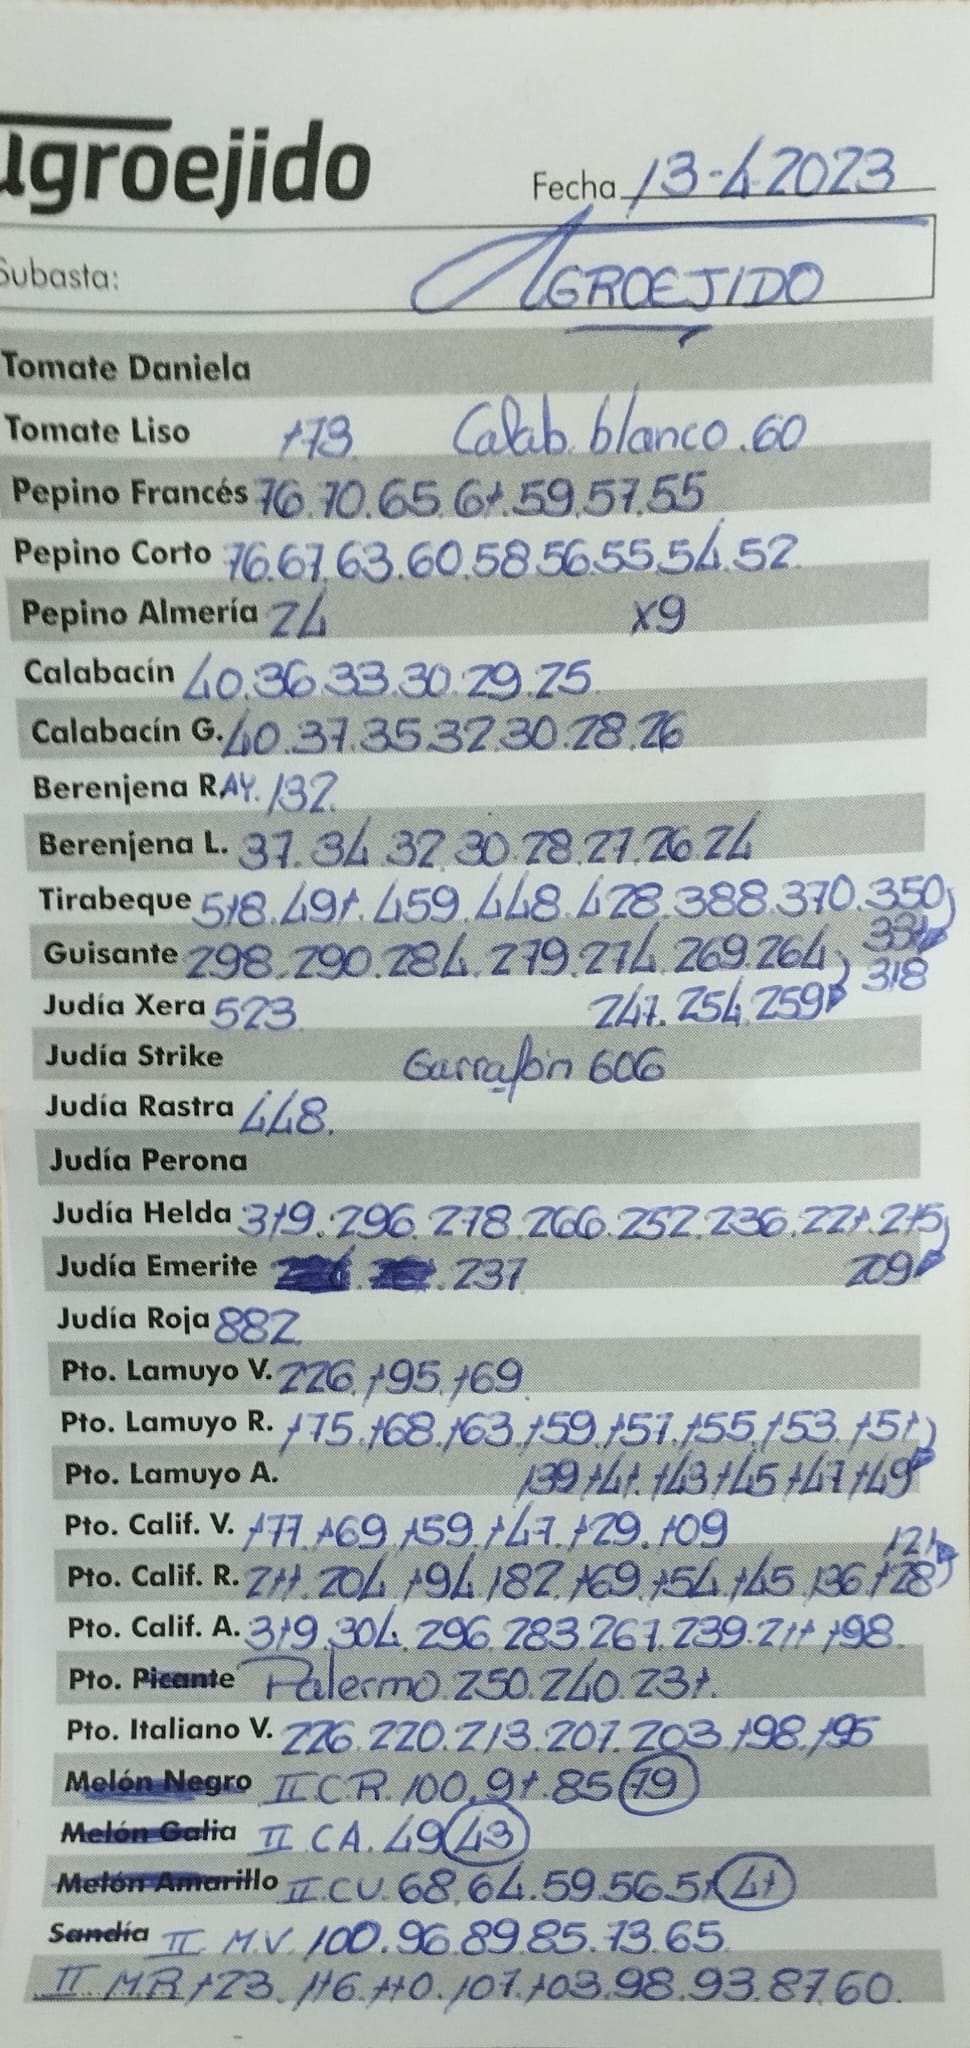 agroejido
Fecha 13-4-2023
Subasta: AGROEJIDO
Tomate Daniela
Tomate Liso 173. Calab. blanco. 60
Pepino Francés 76.70.65.61.59.57.55
Pepino Corto 76.67.63.60.58.56.55.54.52
Pepino Almería 24 x9
Calabacín 40.36.33.30.29.25
Calabacín G. 40.37.35.32.30.28.26
Berenjena RAY. 132.
Berenjena L. 37.34.32.30.28.27.26.24
Tirabeque 518.491.459.448.428.388.370.350
331
Guisante 298.290.284.279.274.269.264
318
Judía Xera 523 247.254.259
Judía Strike Garrafón 606
Judía Rastra 448.
Judía Perona
Judía Helda 319.296.278.266.252.236.221.215
Judía Emerite 237 209
Judía Roja 882
Pto. Lamuyo V. 226.195.169
Pto. Lamuyo R. 175.168.163.159.157.155.153.151
Pto. Lamuyo A. 139.141.143.145.147.149
Pto. Calif. V. 177.169.159.147.129.109
121
Pto. Calif. R. 211.204.194.182.169.154.145.136.128
Pto. Calif. A. 319.304.296.283.267.239.211.198.
Pto. Picante Palermo.250.240.231.
Pto. Italiano V. 226.220.213.207.203.198.195
Melón Negro II C.R. 100.91.85 79
Melón Galia II CA. 49 43
Melón Amarillo II CU. 68.64.59.56.51 41
Sandía II M.V. 100.96.89.85.73.65
II MR 123.116.110.107.103.98.93.87.60.